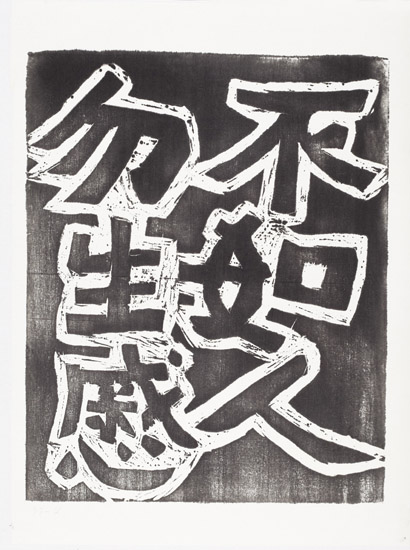 不如人
勿生慼